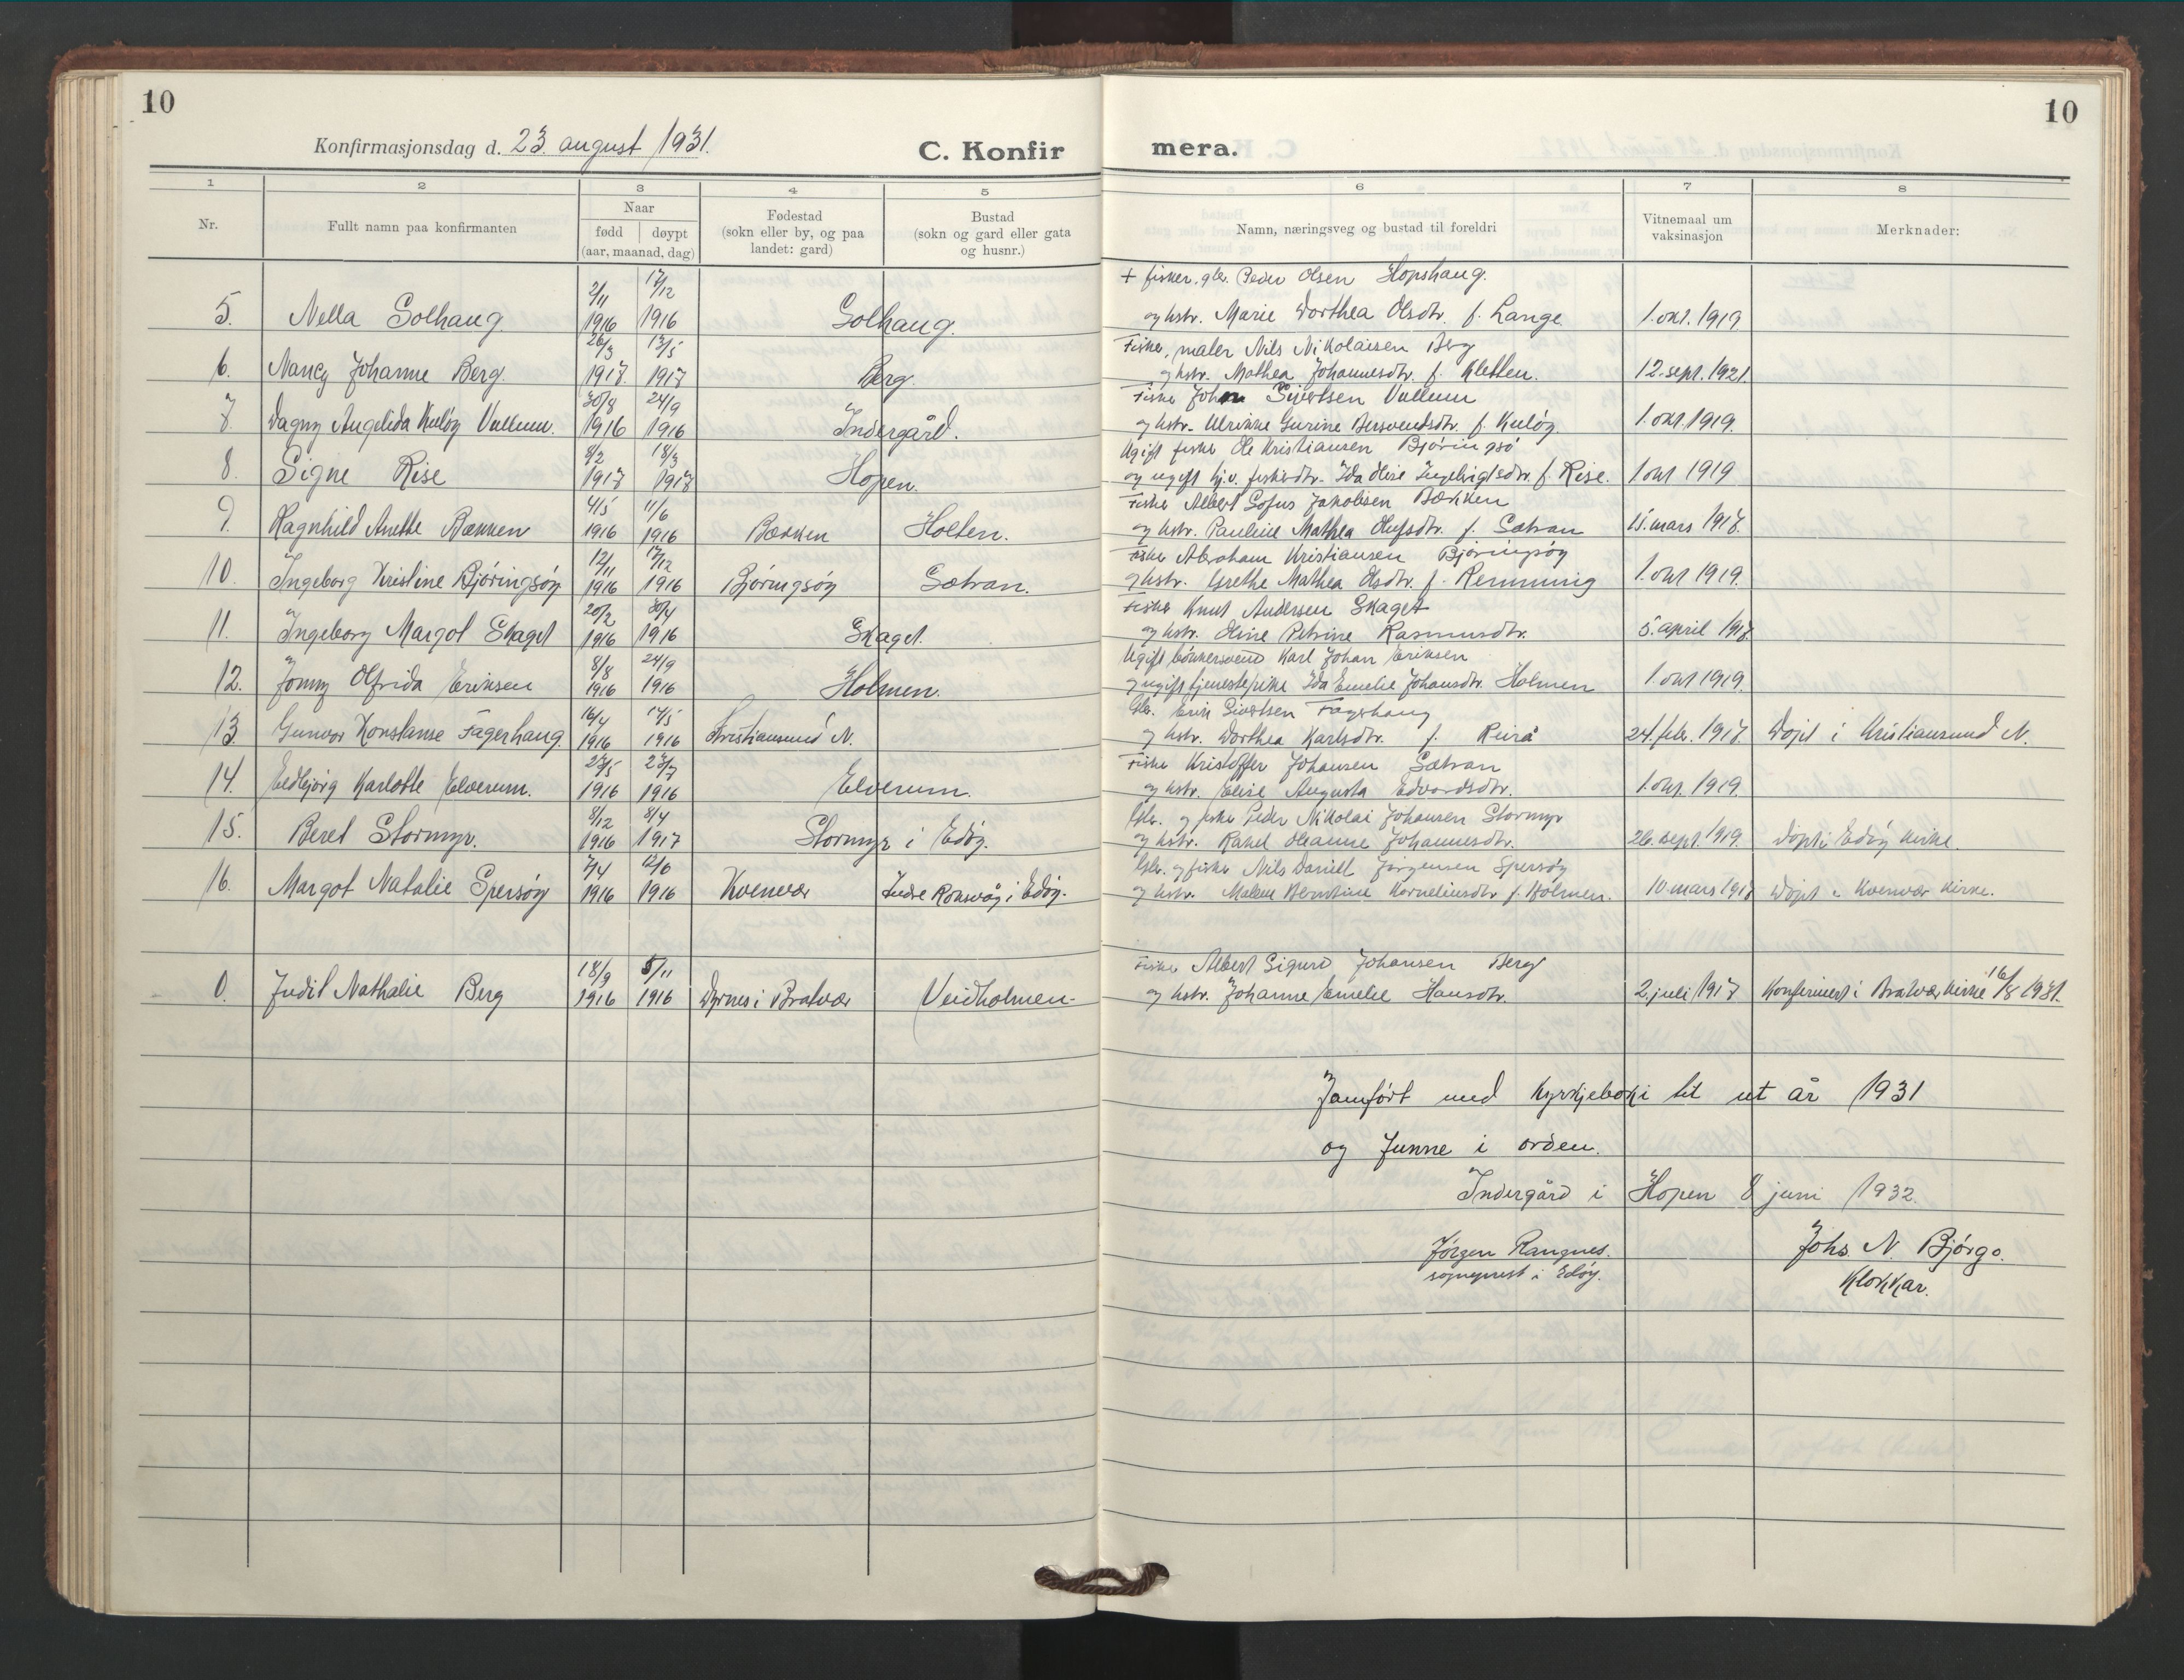 10
10
Konfirmasjonsdag d. 23. august 1931.
C. Konfir
mera.
1 2 3 4 5 6 7 8
Nr.
Fullt namn paa konfirmanten
Naar
født døypt
(aar, maanad, dag)
Fødestad
(sokn eller by, og paa
landet: gard)
Bustad
(sokn og gard eller gata
og husnr.)
Namn, næringsveg og bustad til foreldri
Vitnemaal um
vaksinasjon
Merknader:
2/11 17/12 + fisker, gbr. Peder Olsen Hopshaug.
5. Nella Solhaug 1916 1916 Solhaug. og hstr. Marie Dorthea Olsdtr. f. Lange 1. okt. 1919
26/3 13/5 Fisker, maler Nils Nikolaisen Berg
6. Nancy Johanne Berg. 1917 1917 Berg. og hstr. Mathea Johannesdtr. f. Kletten. 12. sept. 1921.
30/8 24/9 Fisker Johan Sivertsen Vullum
7. Dagny Angelida Kuløy Vullum. 1916 1916 Indergård. og hstr. Ulrikke Gurine Bersvendsdtr. f. Kuløy. 1. okt. 1919.
8/2 18/3 Ugift fisker Ole Kristiansen Bjøringsø
8 Signe Rise 1917 1917 Hopen. og ugift hj.v. fiskerdtr. Ida Olise Ingebrigtsdtr. f. Rise. 1. okt 1919
4/5 11/6 Fisker Albert Sofus Jakobsen Bækken
9. Ragnhild Anette Bækken 1916 1916 Bækken Holten. og hstr. Pauline Mathea Olufsdtr. f. Sætran 15. mars 1917.
12/11 17/12 Fisker Abraham Kristiansen Bjøringsøy
10. Ingeborg Kristine Bjøringsøy 1916 1916 Bjøringsøy Sætran. og hstr. Grethe Mathea Olsdtr. f. Remming 1. okt 1919.
20/2 30/4 Fisker Knut Andersen Skaget
11. Ingeborg Margot Skaget 1916 1916 Skaget. og hstr. Oline Petrine Rasmusdtr. 5. april 1917
8/8 24/9 Ugift bøkkersvend Karl Johan Eriksen
12. Jonny Olfrida Eriksen 1916 1916 Holmen. og ugift tjenestepike Ida Emelie Johansdtr. Holmen 1. okt 1919.
16/4 14/5 Gbr. Erik Sivertsen Fagerhaug
13. Gunvor Konstanse Fagerhaug. 1916 1916 Kristiansund N. og hstr. Dorthea Karlsdtr. f. Reirå 24. febr. 1917. Døpt i Kristiansund N.
27/5 23/7 Fisker Kristoffer Johansen Sætran
14. Eldbjørg Karlotte Elverum. 1916 1916 Elverum. og hstr. Elise Augusta Edvardsdtr. 1. okt. 1919.
8/12 8/4 Gbr. og fisker Peder Nikolai Johansen Stormyr
15. Beret Stormyr. 1916 1917 Stormyr i Edøy. og hstr. Rakel Oleanne Johannesdtr. 26. sept. 1919. Døpt i Edøy kirke.
7/4 12/6 Gbr. og fisker Nils Daniel Jørgensen Spersøy
16. Margot Natalie Spersøy 1916 1916 Kvenvær Indre Roksvåg i Edøy. og hstr. Malene Berntine Korneliusdtr f. Holmen. 10. mars 1917 Døpt i Kvenvær kirke.
18/9 5/11 Fisker Albert Sigurd Johansen Berg
0. Judit Nathalie Berg 1916 1916 Dyrnes i Bratvær Veidholmen. og hstr. Johanne Emelie Hansdtr. 2. juli 1917 Konfirmert i Bratvær kirke 16/8 1931.
Jamført med kyrkjeboki til ut år 1931
og funne i orden.
Indergård i Hopen 8 juni 1932.
Jørgen Rangnes. Johs. N. Bjørgo.
sogneprest i Edøy. Klokkar.